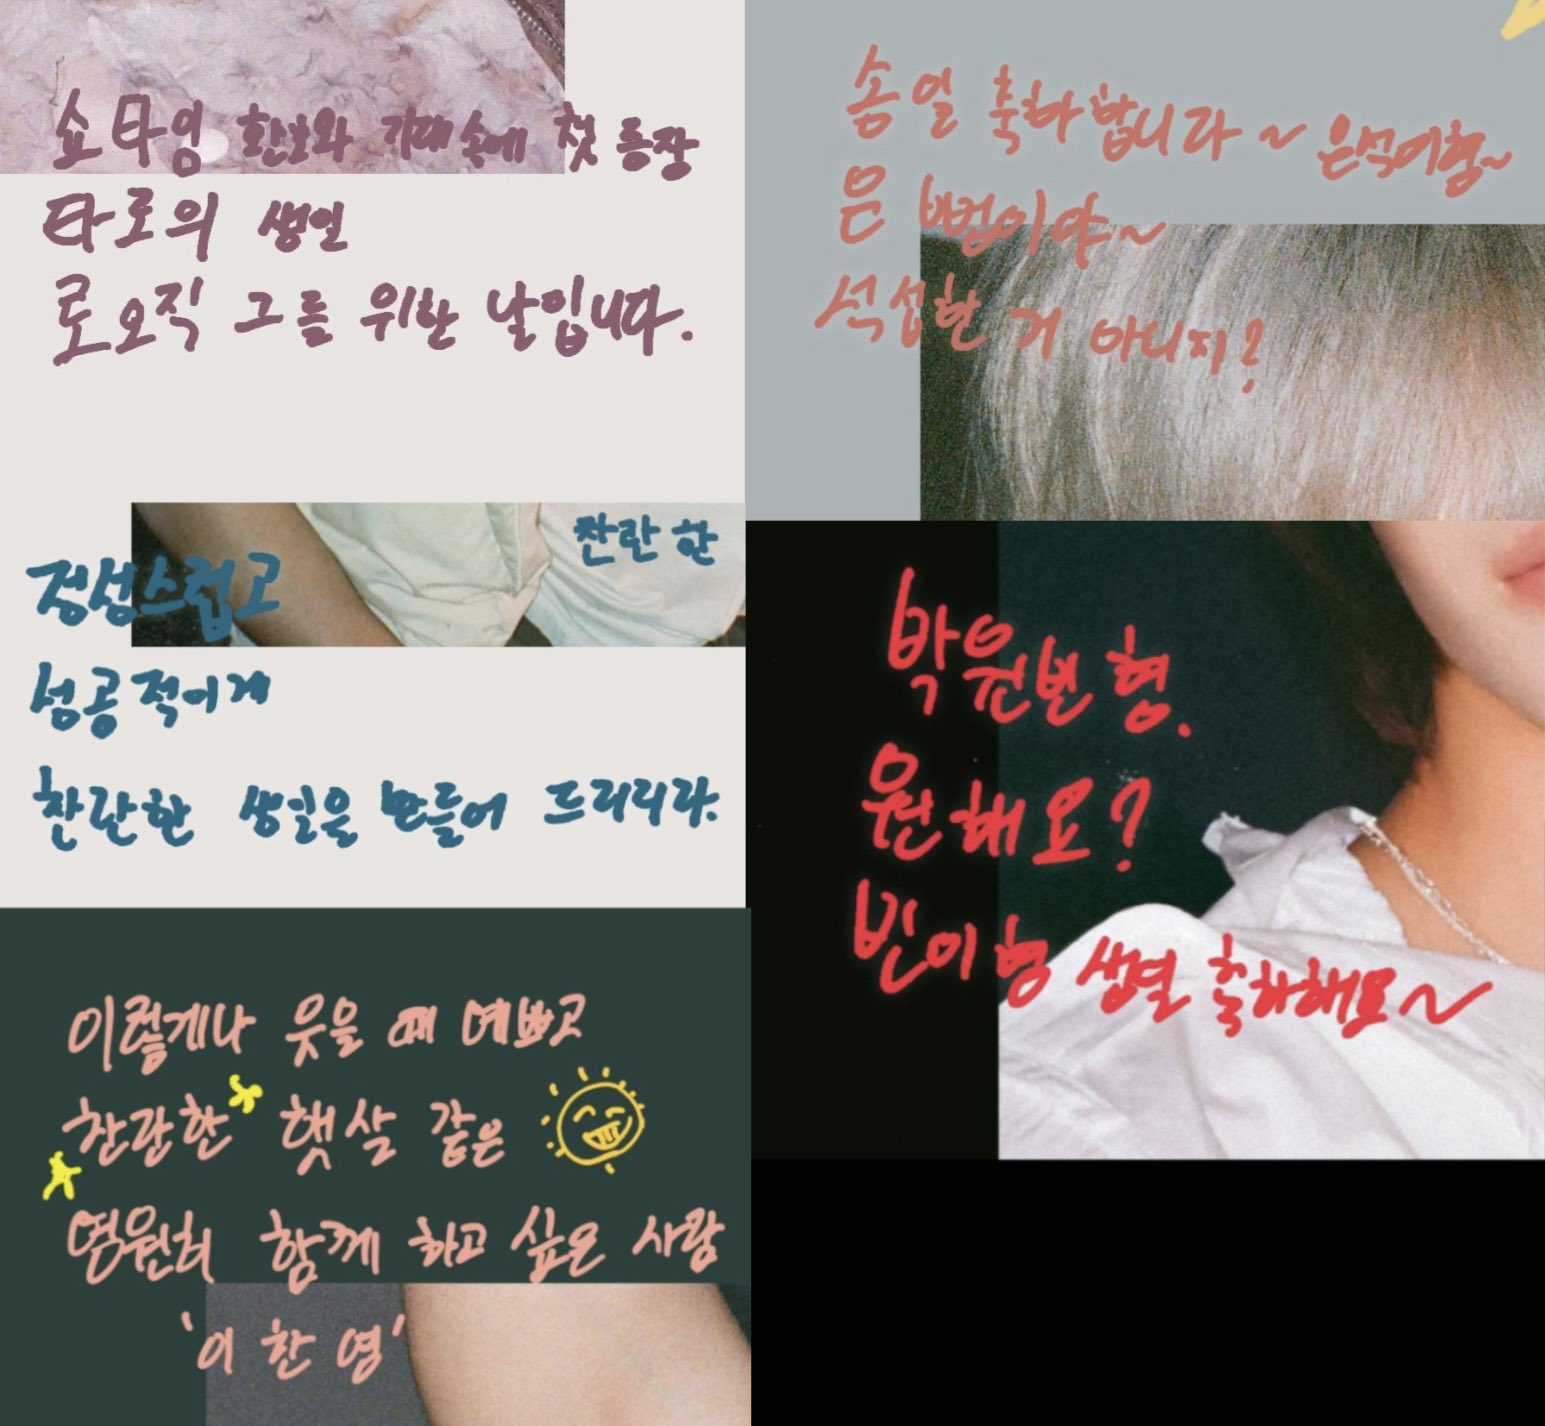 쇼타임 환호와 기대 속에 첫 등장
타로의 생일
로오직 그를 위한 날입니다.
찬란한
정성스럽고
성공적이게
찬란한 생일을 만들어 드리리라.
이렇게나 웃을 때 예쁘고
찬란한 햇살 같은
영원히 함께 하고 싶은 사람
'이 찬 영'
송일 축하합니다~ 은석이형~
은 법이야~
석섭한 거 아니지?
박원빈 형.
원해요?
빈이 형 생일 축하해요~